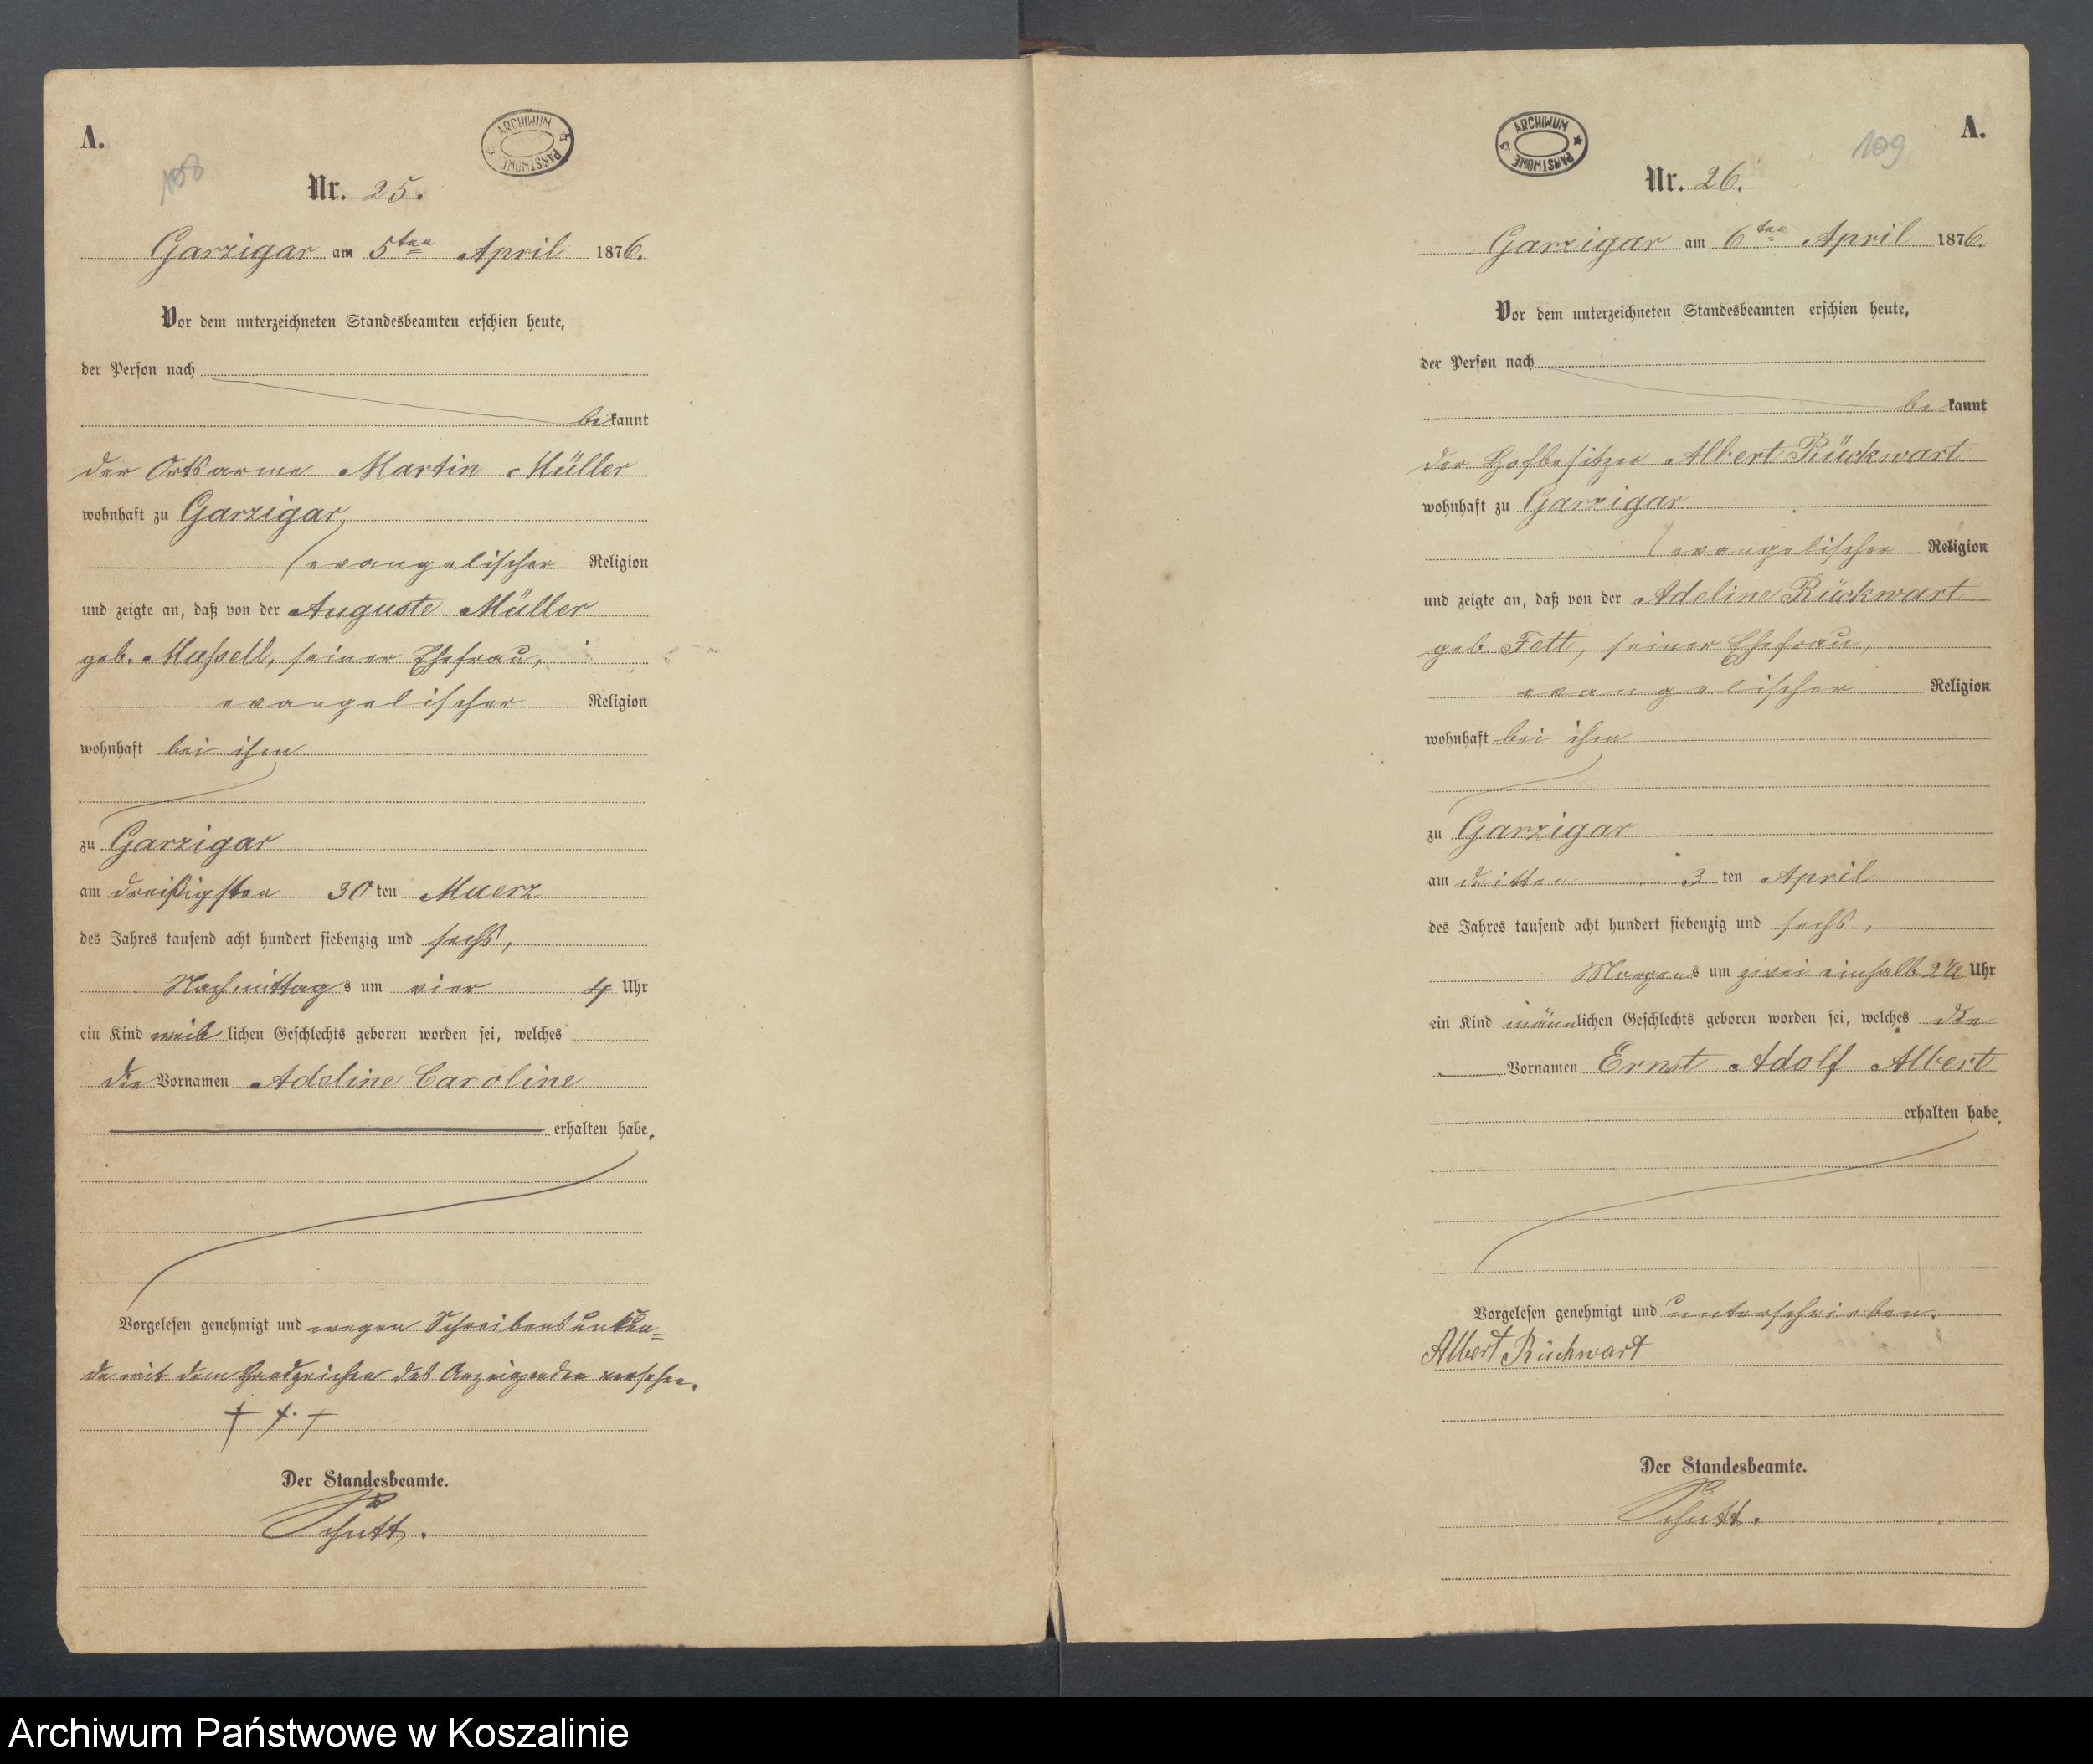 A.
108
ARCHIWUM PAŃSTWOWE
Nr. 25.
Garzigar am 5ten April 1876.
Vor dem unterzeichneten Standesbeamten erschien heute,
der Person nach
bekannt
der Ortsarme Martin Müller
wohnhaft zu Garzigar,
evangelischer Religion
und zeigte an, daß von der Auguste Müller
geb. Massell, seiner Ehefrau,
evangelischer Religion
wohnhaft bei ihm
zu Garzigar
am dreißigsten 30 ten Maerz
des Jahres tausend acht hundert siebenzig und sechs,
Nachmittags um vier 4 Uhr
ein Kind weiblichen Geschlechts geboren worden sei, welches
die Vornamen Adeline Caroline
erhalten habe.
Vorgelesen genehmigt und wegen Schreibensunkun=
de mit dem Handzeichen des Anzeigenden versehen.
+ + +
Der Standesbeamte.
Schutt.
A.
109
ARCHIWUM PAŃSTWOWE
Nr. 26.
Garzigar am 6ten April 1876.
Vor dem unterzeichneten Standesbeamten erschien heute,
der Person nach
bekannt
der Hofbesitzer Albert Rückwart
wohnhaft zu Garzigar
evangelischer Religion
und zeigte an, daß von der Adeline Rückwart
geb. Fett, seiner Ehefrau,
evangelischer Religion
wohnhaft bei ihm
zu Garzigar
am dritten 3 ten April
des Jahres tausend acht hundert siebenzig und sechs,
Morgens um zwei einhalb 2 1/2 Uhr
ein Kind männlichen Geschlechts geboren worden sei, welches die
Vornamen Ernst Adolf Albert
erhalten habe.
Vorgelesen genehmigt und unterschrieben.
Albert Rückwart
Der Standesbeamte.
Schutt.
Archiwum Państwowe w Koszalinie